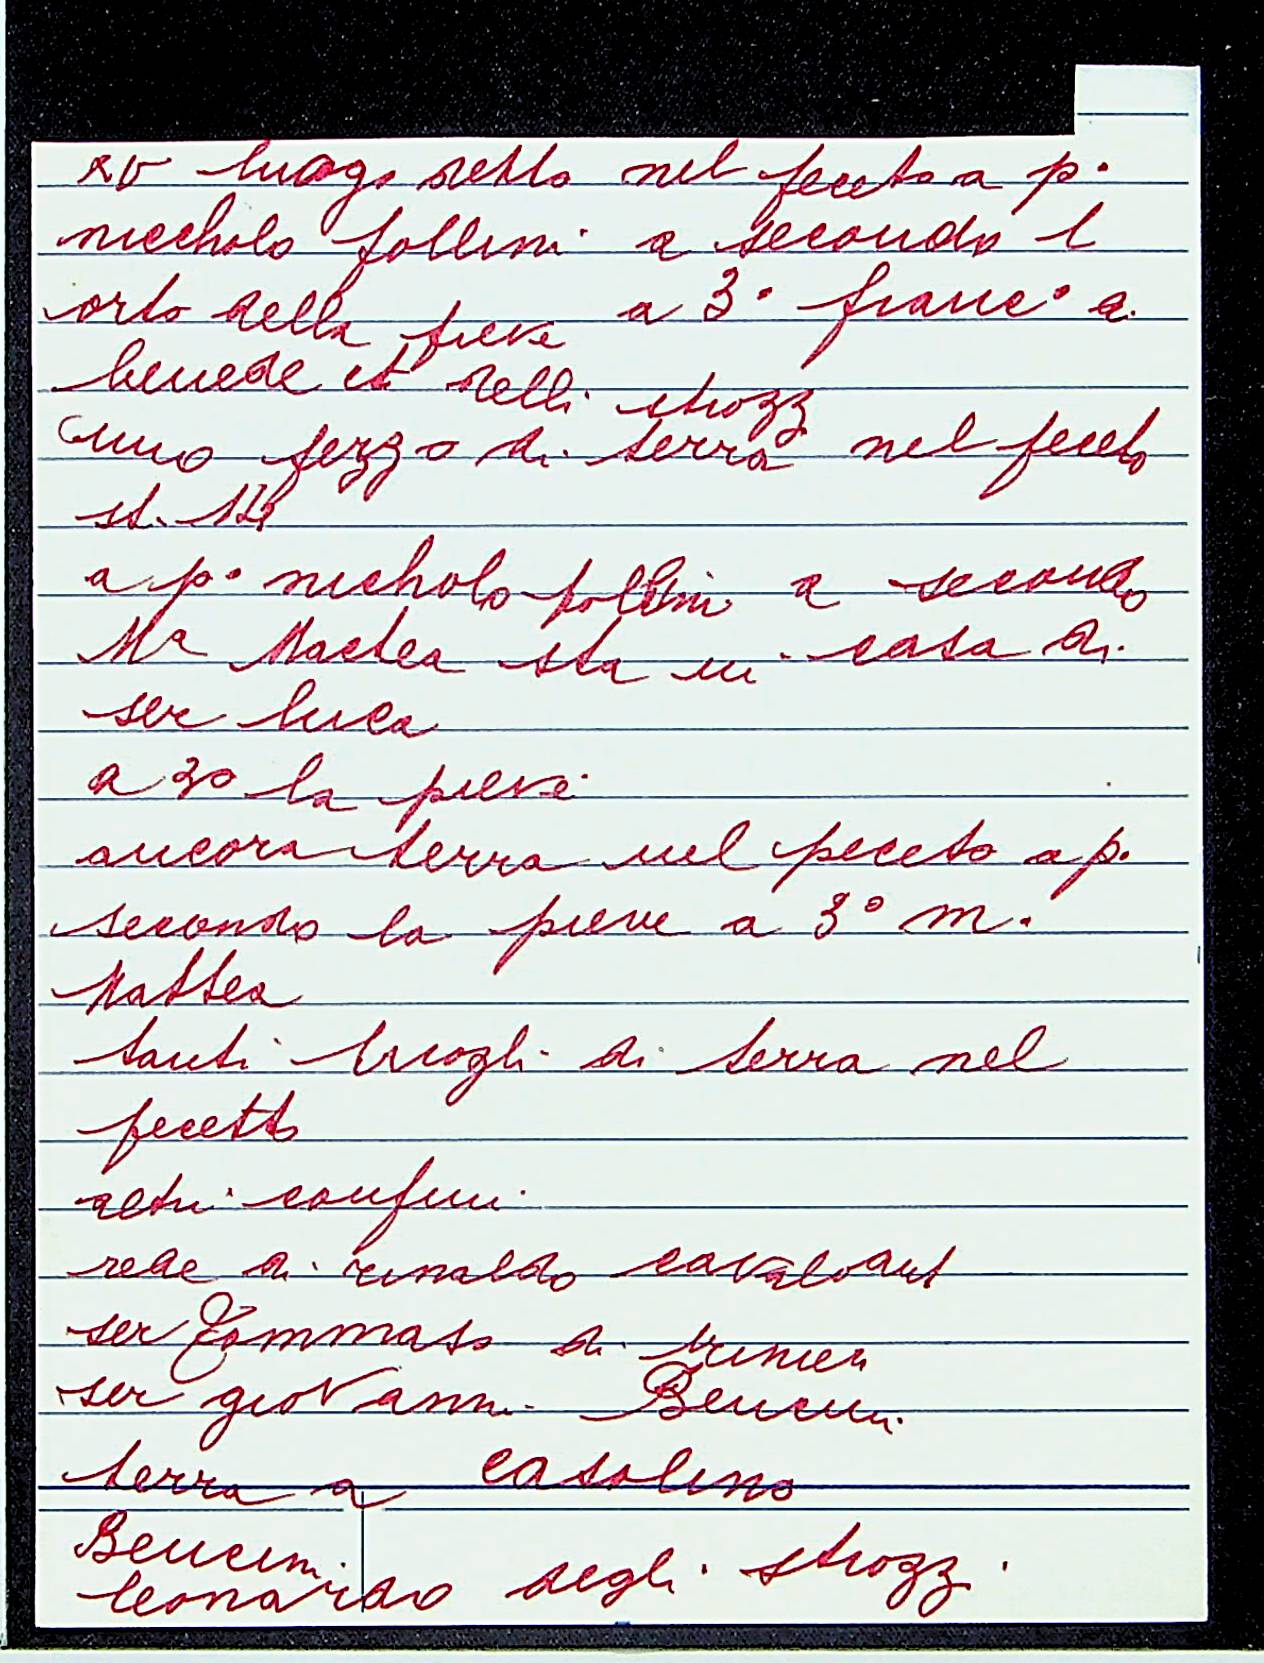 xv luogo detto nel peceto a p.
niccholo follini a secondo l
orto della pieve a 3° franc° a.
benedet delli strozz
uno pezzo di terra nel peceto
st. 12
a p° nicholo follini a secondo
Ma Mactea sta in casa di
ser luca
a 3o la pieve
ancora terra nel peceto a p.
secondo la pieve a 3° m.
Mattea
tanti luoghi di terra nel
pecetto
altri confini
rede di rinaldo cavalcant
ser Tommaso di
ser giovanni Bencini
terra a casolino
Bencini
leonardo degli strozzi